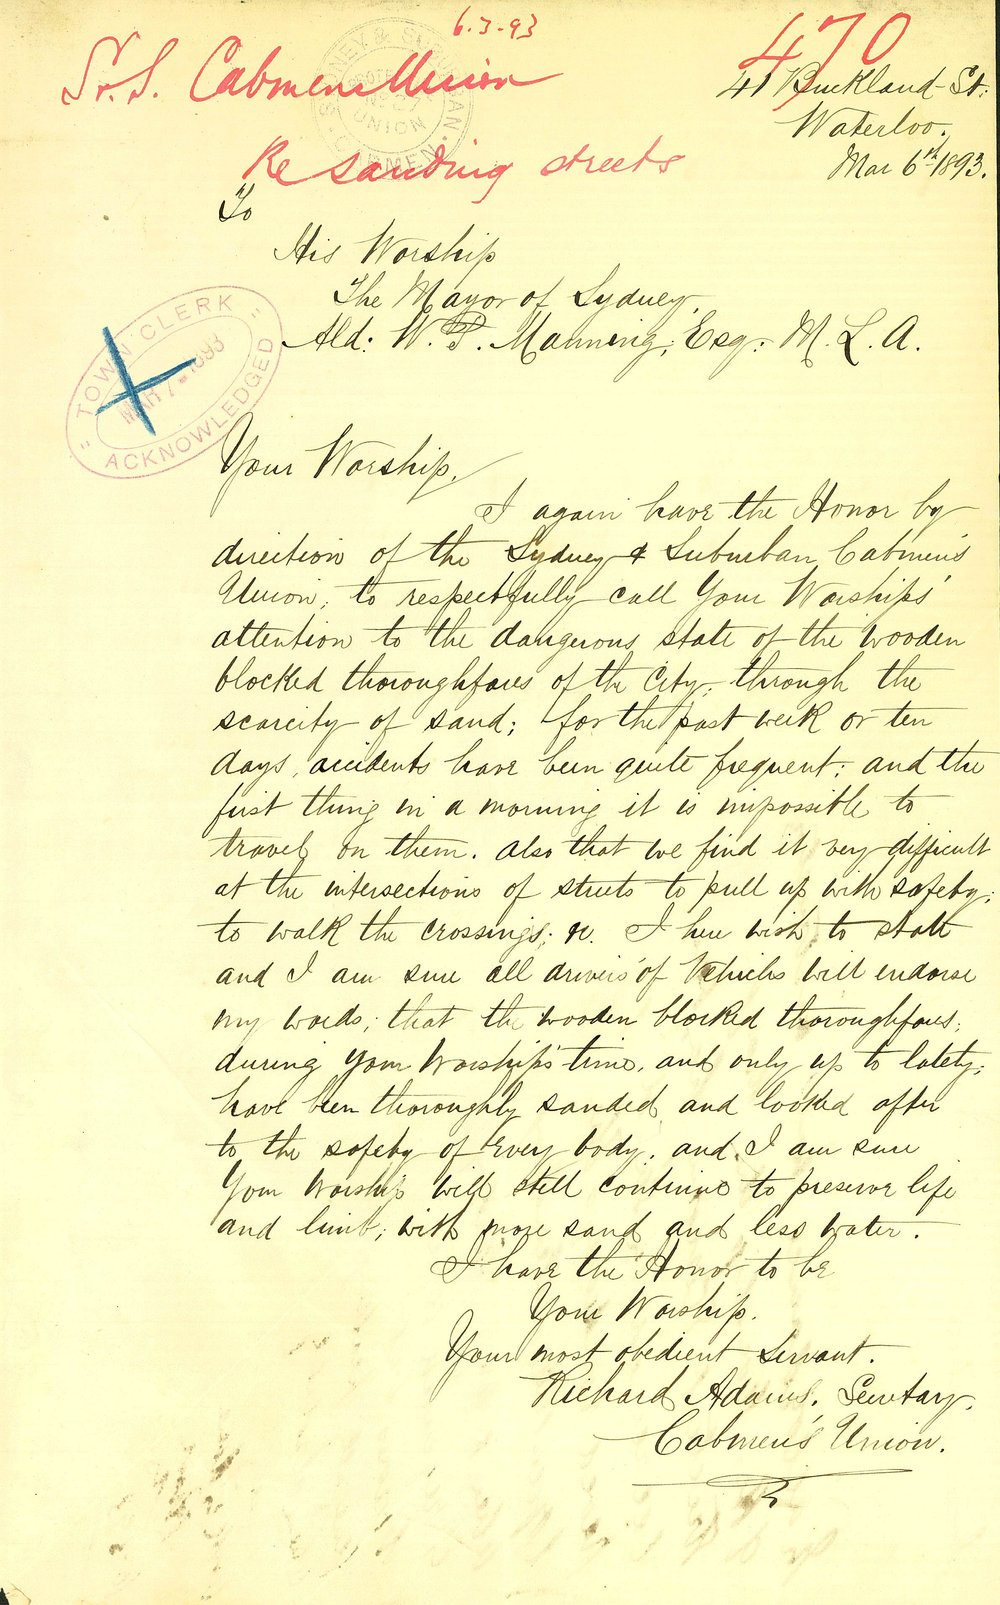 6.3.93
470
S. & S. Cabmens Union
Re sanding streets
SYDNEY & SUBURBAN CABMEN UNION
41 Buckland St.
Waterloo.
Mar 6th 1893.
To
His Worship
The Mayor of Sydney,
Ald: W. P. Manning, Esq: M. L. A.
TOWN CLERK
MAR 7 - 1893
ACKNOWLEDGED
Your Worship,
I again have the Honor by
direction of the Sydney & Suburban Cabmen's
Union, to respectfully call Your Worships'
attention to the dangerous state of the wooden
blocked thoroughfares of the City, through the
scarcity of sand; for the past week or ten
days, accidents have been quite frequent; and the
first thing in a morning it is impossible to
travel on them. also that we find it very difficult
at the intersections of streets to pull up with safety;
to walk the crossings; &c. I here wish to state
and I am sure all drivers' of Vehicles will endorse
my words; that the wooden blocked thoroughfares;
during your Worship's time, and only up to lately;
have been thoroughly sanded and looked after
to the safety of every body, and I am sure
Your Worship will still continue to preserve life
and limb; with more sand and less water.
I have the Honor to be
Your Worship.
Your most obedient Servant.
Richard Adams, Secretary.
Cabmen's Union.